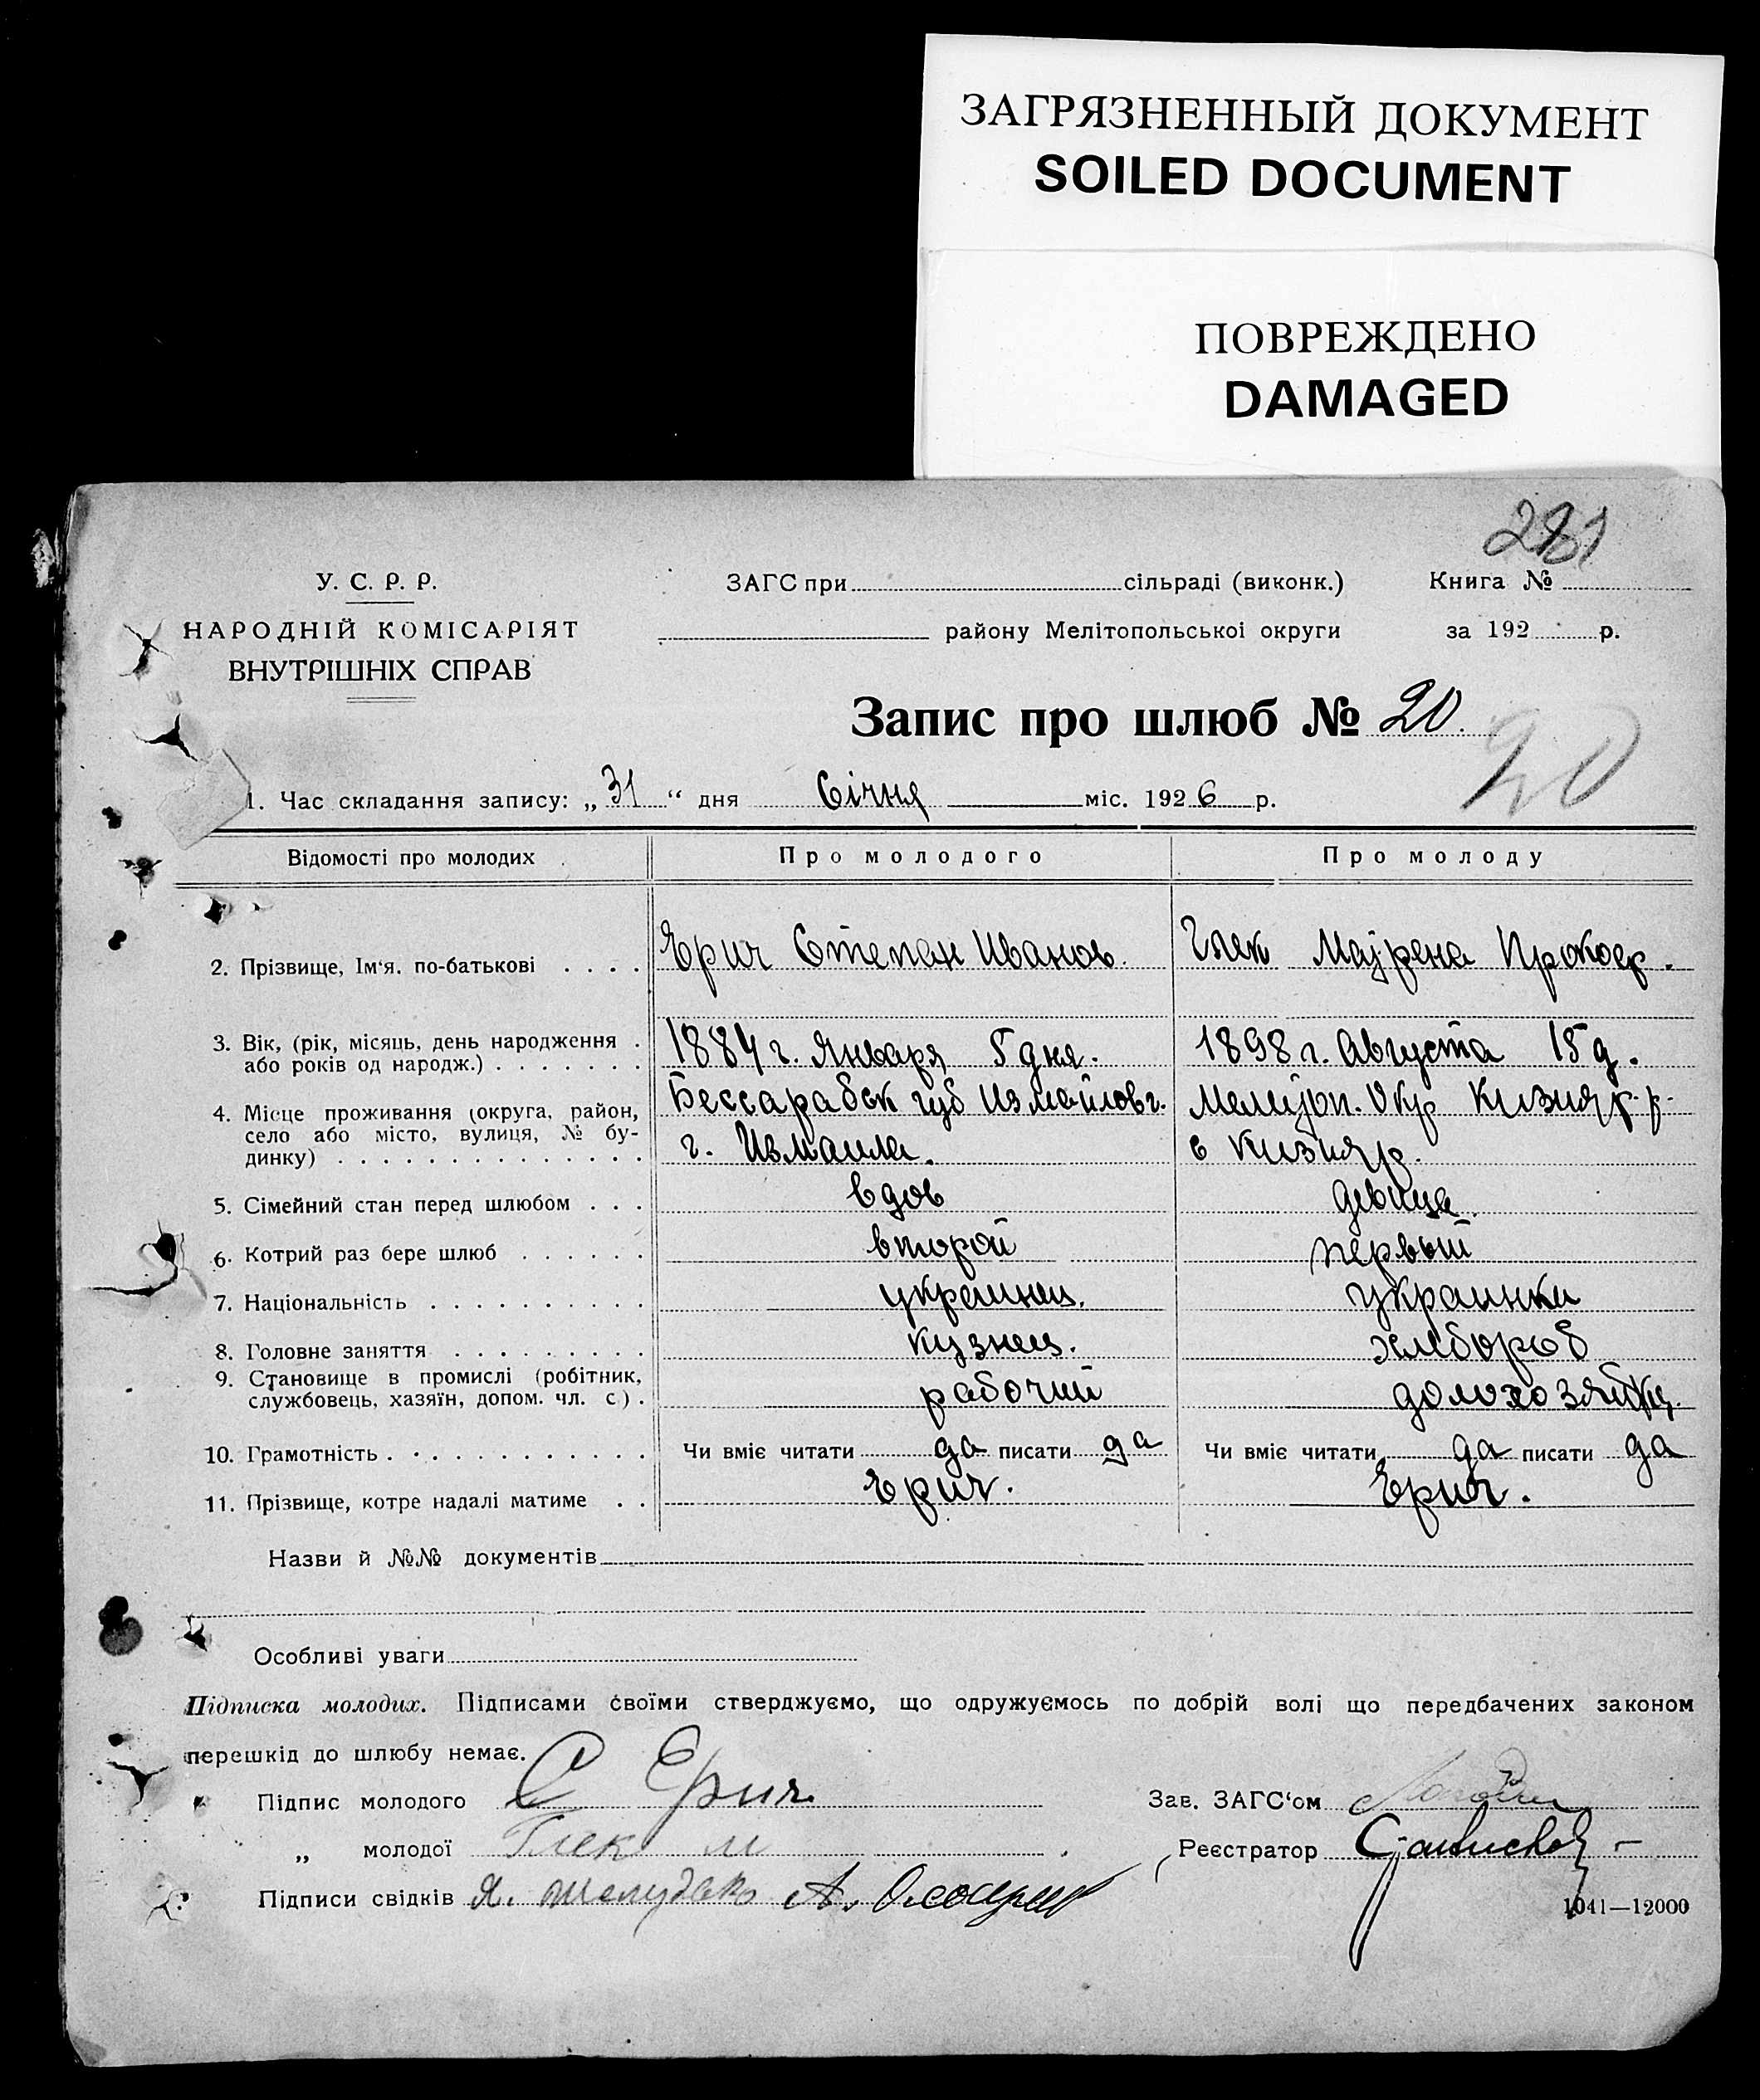 ЗАГРЯЗНЕННЫЙ ДОКУМЕНТ
SOILED DOCUMENT
ПОВРЕЖДЕНО
DAMAGED
У. С. Р. Р.
НАРОДНІЙ КОМІСАРІЯТ
ВНУТРІШНІХ СПРАВ
ЗАГС при сільраді (виконк.) Книга №
району Мелітопольської округи за 192 р.
Запис про шлюб № 20.
20
1. Час складання запису: „31“ дня Січня міс. 1926 р.
Відомості про молодих Про молодого Про молоду
2. Прізвище, Ім'я. по-батькові . . . . Ерич Степан Иванов. Глек Прокоф.
3. Вік, (рік, місяць, день народження . 1884 г. Января 5 дня. 1898 г. Августа 15 д.
або років од народж.) . . . . . . .
4. Місце проживання (округа, район, Бессарабск губ Измаиловг. Мелитоп. Окр Кизияр. р.
село або місто, вулиця, № бу-
динку) . . . . . . . . . . . . . . г. Измаила. с Кизияр.
5. Сімейний стан перед шлюбом . . . вдов девица.
6. Котрий раз бере шлюб . . . . . . второй первый
7. Національність . . . . . . . . . . . украинец. украинка
8. Головне заняття . . . . . . . . . кузнец. хлебороб
9. Становище в промислі (робітник, рабочий домохозяйка
службовець, хазяїн, допом. чл. с) .
10. Грамотність . . . . . . . . . . . Чи вміє читати да писати да Чи вміє читати да писати да
11. Прізвище, котре надалі матиме . . Ерич. Ерич.
Назви й №№ документів
Особливі уваги
Підписка молодих. Підписами своїми стверджуємо, що одружуємось по добрій волі що передбачених законом
перешкід до шлюбу немає.
Підпис молодого С Ерич Зав. ЗАГС'ом
„ молодої Глек М Реєстратор
Підписи свідків Я. Шелудько А.
1041—12000